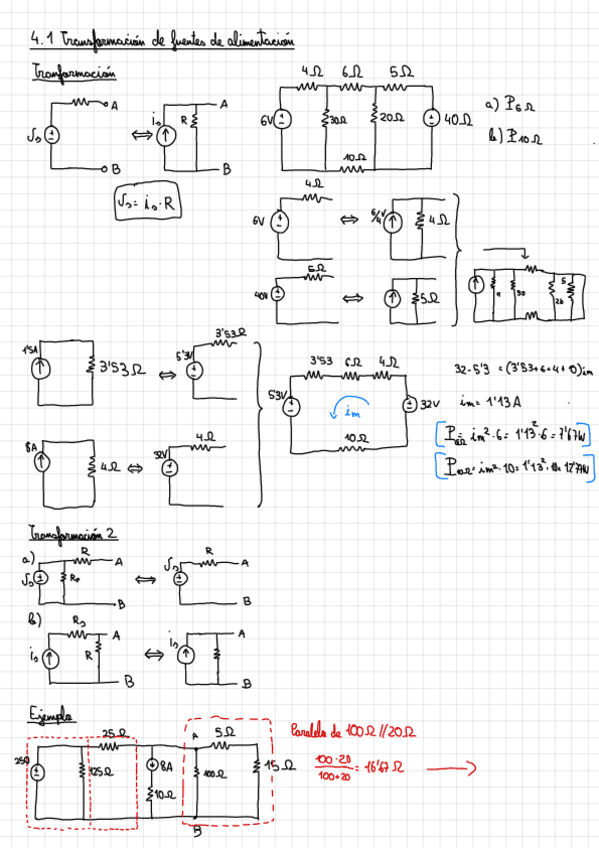 4.1 Transformación de fuentes de alimentación
Tranformación
4Ω 6Ω 5Ω
A
R
A
6V 30Ω 20Ω 40Ω
a) P6Ω
b) P10Ω
B
B
10Ω
4Ω
6V 6/4 4Ω
5Ω
40V 5Ω
4 30 20 5
1'5A 3'53Ω 5'3V 3'53Ω
8A 4Ω 32V 4Ω
3'53 6Ω 4Ω
53V im 32V
10Ω
32-5'3 = (3'53+6+4+10)im
im = 1'13A
P6Ω = im²·6 = 1'13²·6 = 7'67W
P10Ω = im²·10 = 1'13²·10 = 12'77W
Transformación 2
a) R A R A
B B
b) A A
R
B B
Ejemplo
25Ω A 5Ω
125Ω 8A 100Ω 15Ω
10Ω
B
Paralelo de 100Ω//20Ω
100·20 / 100+20 = 16'67Ω